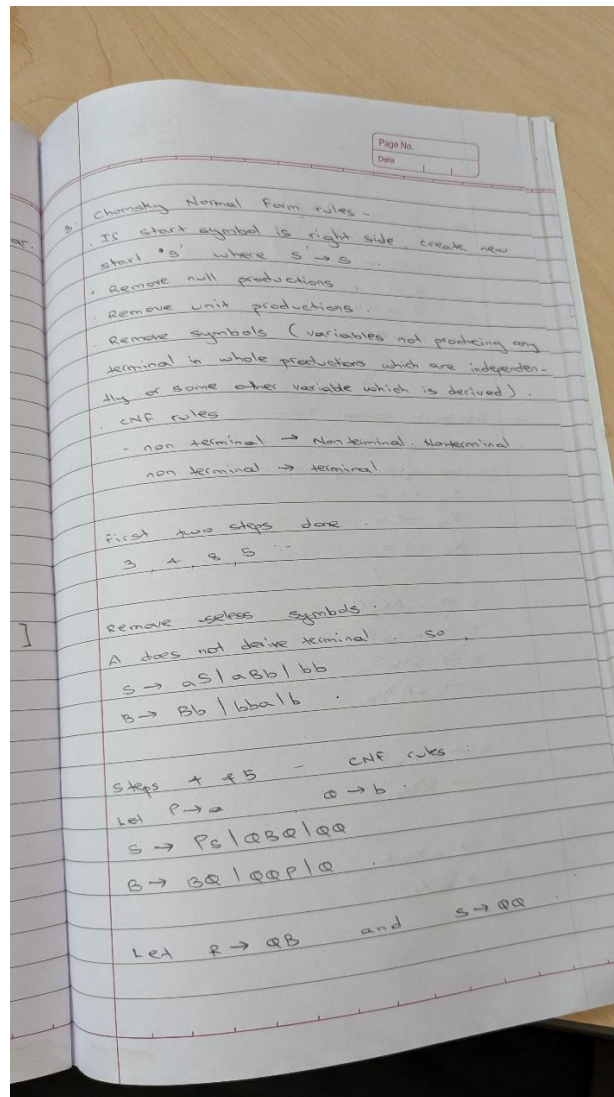 Page No.
Date
ar.
3. Chomsky Normal Form rules -
. If start symbol is right side, create new
start 'S' where S' → S
. Remove null productions
. Remove unit productions.
. Remove symbols (variables not producing any
terminal in whole productions which are independen-
tly or some other variable which is derived).
. CNF rules
- non terminal → Non terminal. Nonterminal
non terminal → terminal
First two steps done.
3, 4, 8, 5 :-
]
Remove useless symbols.
A does not derive terminal. so,
S → aS | aBb | bb
B → Bb | bba | b.
Steps 4 & 5 - CNF rules:
Let P → a, Q → b.
S → PS | QBQ | QQ
B → BQ | QQP | Q.
Let R → QB and S → QQ.